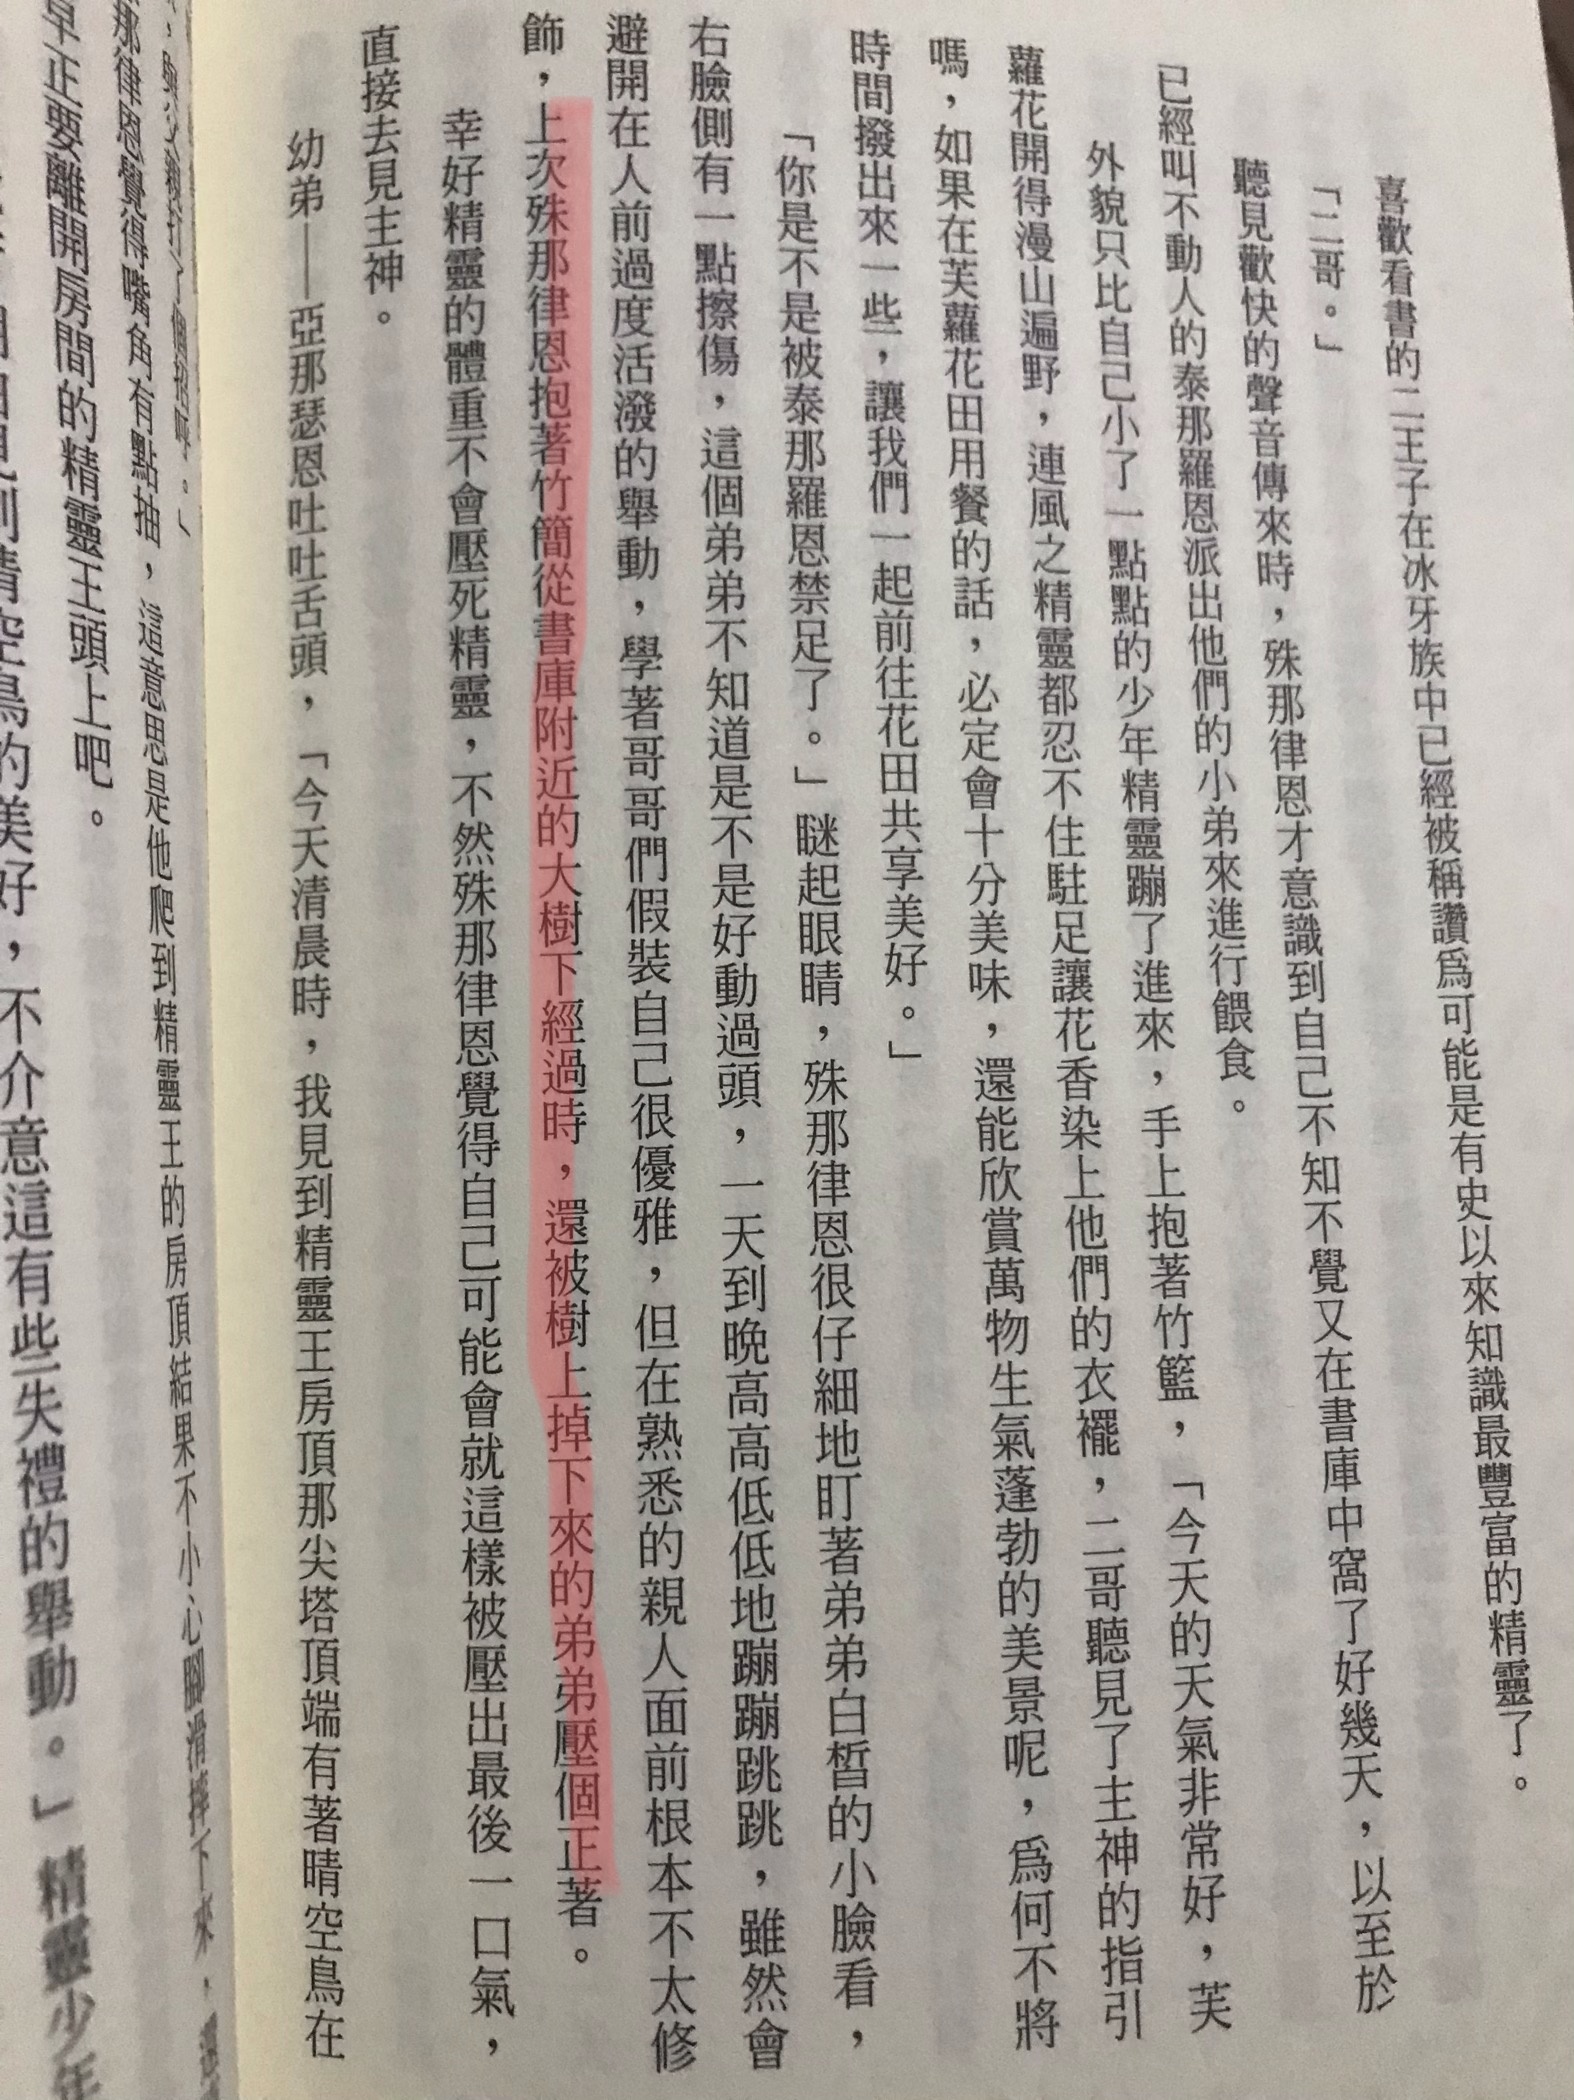 喜歡看書的二王子在冰牙族中已經被稱讚為可能是有史以來知識最豐富的精靈了。
「二哥。」
聽見歡快的聲音傳來時，殊那律恩才意識到自己不知不覺又在書庫中窩了好幾天，以至於
已經叫不動人的泰那羅恩派出他們的小弟來進行餵食。
外貌只比自己小了一點點的少年精靈蹦了進來，手上抱著竹籃，「今天的天氣非常好，芙
蘿花開得漫山遍野，連風之精靈都忍不住駐足讓花香染上他們的衣襬，二哥聽見了主神的指引
嗎，如果在芙蘿花田用餐的話，必定會十分美味，還能欣賞萬物生氣蓬勃的美景呢，為何不將
時間撥出來一些，讓我們一起前往花田共享美好。」
「你是不是被泰那羅恩禁足了。」瞇起眼睛，殊那律恩很仔細地盯著弟弟白皙的小臉看，
右臉側有一點擦傷，這個弟弟不知道是不是好動過頭，一天到晚高高低低地蹦蹦跳跳，雖然會
避開在人前過度活潑的舉動，學著哥哥們假裝自己很優雅，但在熟悉的親人面前根本不太修
飾，上次殊那律恩抱著竹簡從書庫附近的大樹下經過時，還被樹上掉下來的弟弟壓個正著。
幸好精靈的體重不會壓死精靈，不然殊那律恩覺得自己可能會就這樣被壓出最後一口氣，
直接去見主神。
幼弟——亞那瑟恩吐吐舌頭，「今天清晨時，我見到精靈王房頂那尖塔頂端有著晴空鳥在
那律恩覺得嘴角有點抽，這意思是他爬到精靈王的房頂結果不小心腳滑摔下來，
早正要離開房間的精靈王頭上吧。
晴空鳥的美好，不介意這有些失禮的舉動。」精靈少年